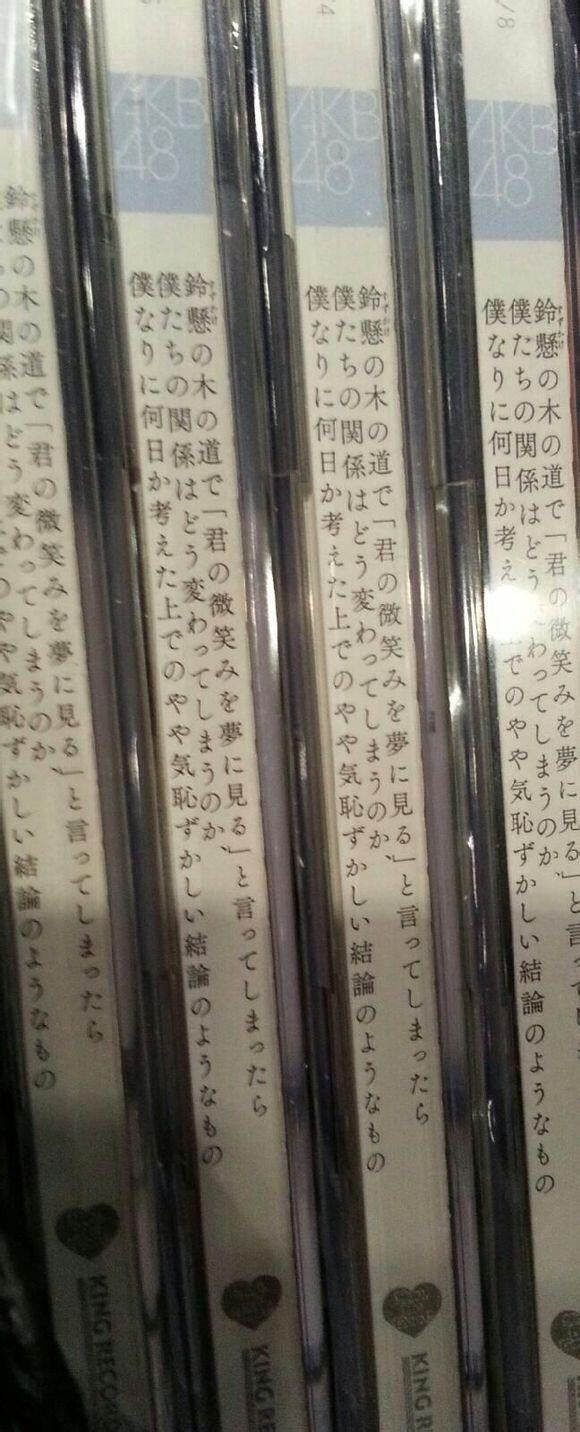 AKB
48
鈴懸の木の道で「君の微笑みを夢に見る」と言ってしまったら
僕たちの関係はどう変わってしまうのか、
僕なりに何日か考えた上でのやや気恥ずかしい結論のようなもの
KING RECORD
AKB
48
鈴懸の木の道で「君の微笑みを夢に見る」と言ってしまったら
僕たちの関係はどう変わってしまうのか、
僕なりに何日か考えた上でのやや気恥ずかしい結論のようなもの
KING R
4
AKB
48
鈴懸の木の道で「君の微笑みを夢に見る」と言って
僕たちの関係はどう わってしまうのか、
僕なりに何日か考え でのやや気恥ずかしい結論のようなもの
/8
鈴懸の木の道で「君の微笑みを夢に見る」と言ってしまったら
の関係はどう変わってしまうのか、
のやや気恥ずかしい結論のようなもの
KING RECOR